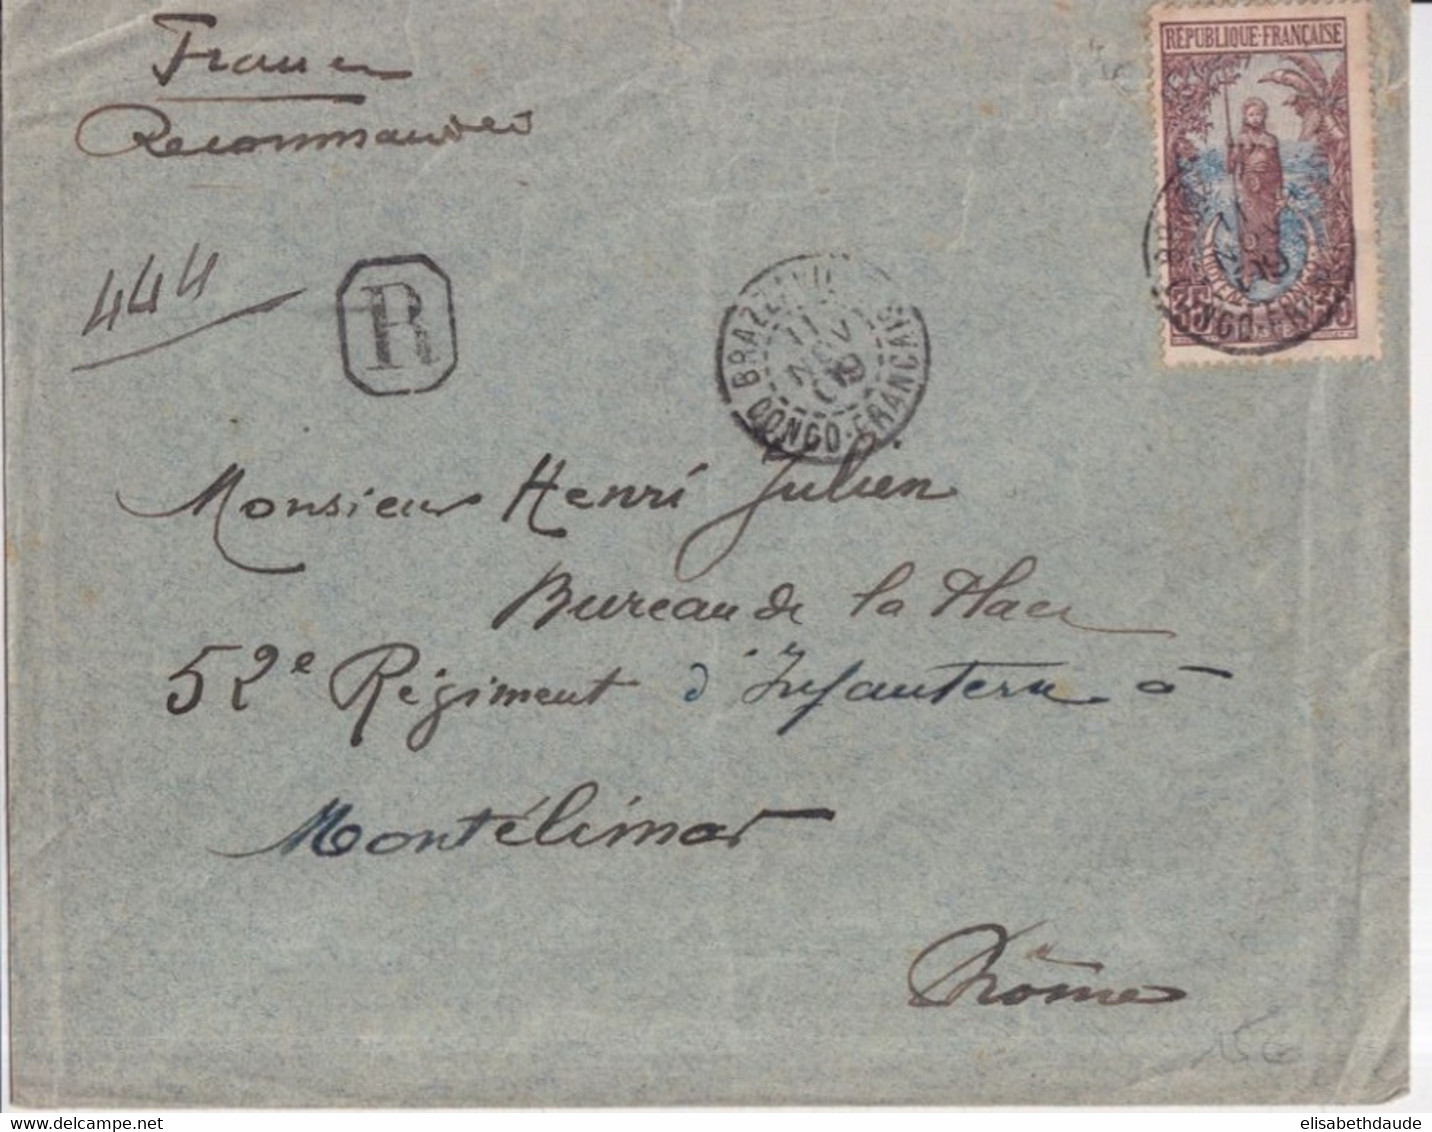 France
Recommandée
RÉPUBLIQUE·FRANÇAISE
444
R
BRAZZAVILLE
11
NOV
09
CONGO-FRANCAIS
35 35
Monsieur Henri Julien
Bureau de la Place
52e Régiment d'Infanterie à
Montélimar
Drôme
elisabethdaude